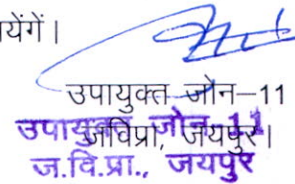 येंगें।
उपायुक्त जोन–11
जविप्रा, जयपुर।
उपायुक्त जोन-11
ज.वि.प्रा., जयपुर